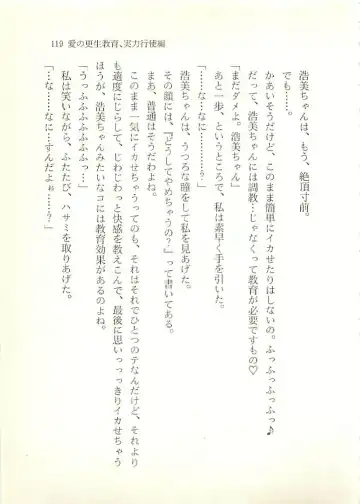 119 愛の更生教育、実力行使編
浩美ちゃんは、もう、絶頂寸前。
でも……。
かあいそうだけど、このまま簡単にイカせたりはしないの。ふっふっふっふっ♪
だって、浩美ちゃんには調教…じゃなくって教育が必要ですもの♡
「まだダメよ。浩美ちゃん」
あと一歩、というところで、私は素早く手を引いた。
「な……なに…………？」
浩美ちゃんは、うつろな瞳をして私を見あげた。
その顔には、『どうしてやめちゃうの？』って書いてある。
まあ、普通はそうだわよね。
このまま一気にイカせちゃうってのも、それはそれでひとつのテなんだけど、それより
も適度にじらして、じわじわっと快感を教えこんで、最後に思いっっっきりイカせちゃう
ほうが、浩美ちゃんみたいなコには教育効果があるのよね。
「うっふふふふふふふふふふ」
私は笑いながら、ふたたび、ハサミを取りあげた。
「な……なに……すんだよぉ……？」